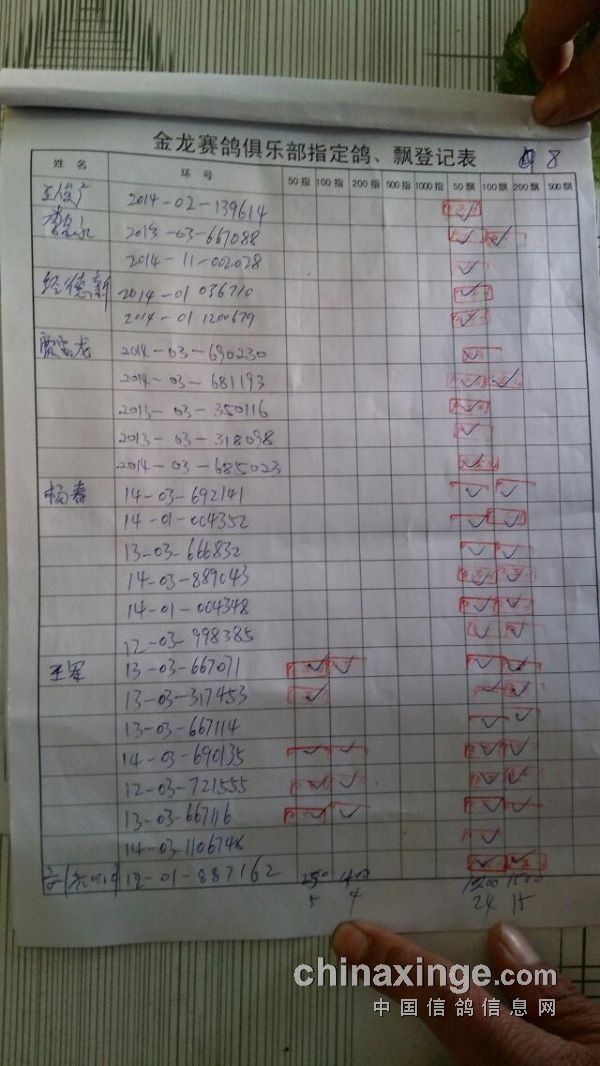 金龙赛鸽俱乐部指定鸽、飘登记表 8
姓名 环号 50指 100指 200指 500指 1000指 50飘 100飘 200飘 500飘
2014-02-139614 ✓
2013-03-667088 ✓ ✓
2014-11-002028 ✓
经德新 2014-01 036710 ✓
2014-01 1200679 ✓
2014-03-690230 ✓
2014-03-681193 ✓ ✓
2013-03-350116 ✓
2013-03-318098 ✓
2014-03-685023 ✓
杨春 14-03-692141 ✓ ✓
14-01-004352 ✓ ✓
13-03-666832 ✓ ✓
14-03-889043 ✓ ✓
14-01-004348 ✓ ✓
12-03-998385 ✓ ✓
王军 13-03-667071 ✓ ✓ ✓ ✓
13-03-317453 ✓ ✓ ✓
13-03-667114 ✓ ✓
14-03-690135 ✓ ✓ ✓ ✓
12-03-721555 ✓ ✓ ✓ ✓
13-03-667116 ✓ ✓ ✓ ✓
14-03-1106748 ✓
12-01-887162 ✓ ✓
250 400 1200 1500
5 4 24 15
chinaxinge.com
中国信鸽信息网